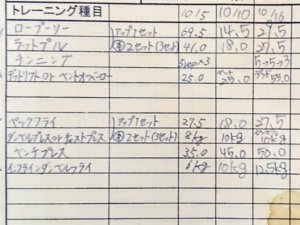 トレーニング種目 10/5 10/10 10/16
ロープーリー アップ1セット 69.5 14.5 27.5
ラットプル 2セット(3セット) 41.0 18.0 27.5
チンニング
デットリフト or ベントオーバーロー 25.0 25.0 55.0
ペックフライ アップ1セット 27.5 18.0 27.5
ダンベルプレス or チェストプレス 2セット(3セット) 8kg 10kg 10kg
ベンチプレス 35.0 45.0 50.0
インクラインダンベルフライ 6kg 10kg 12.5kg